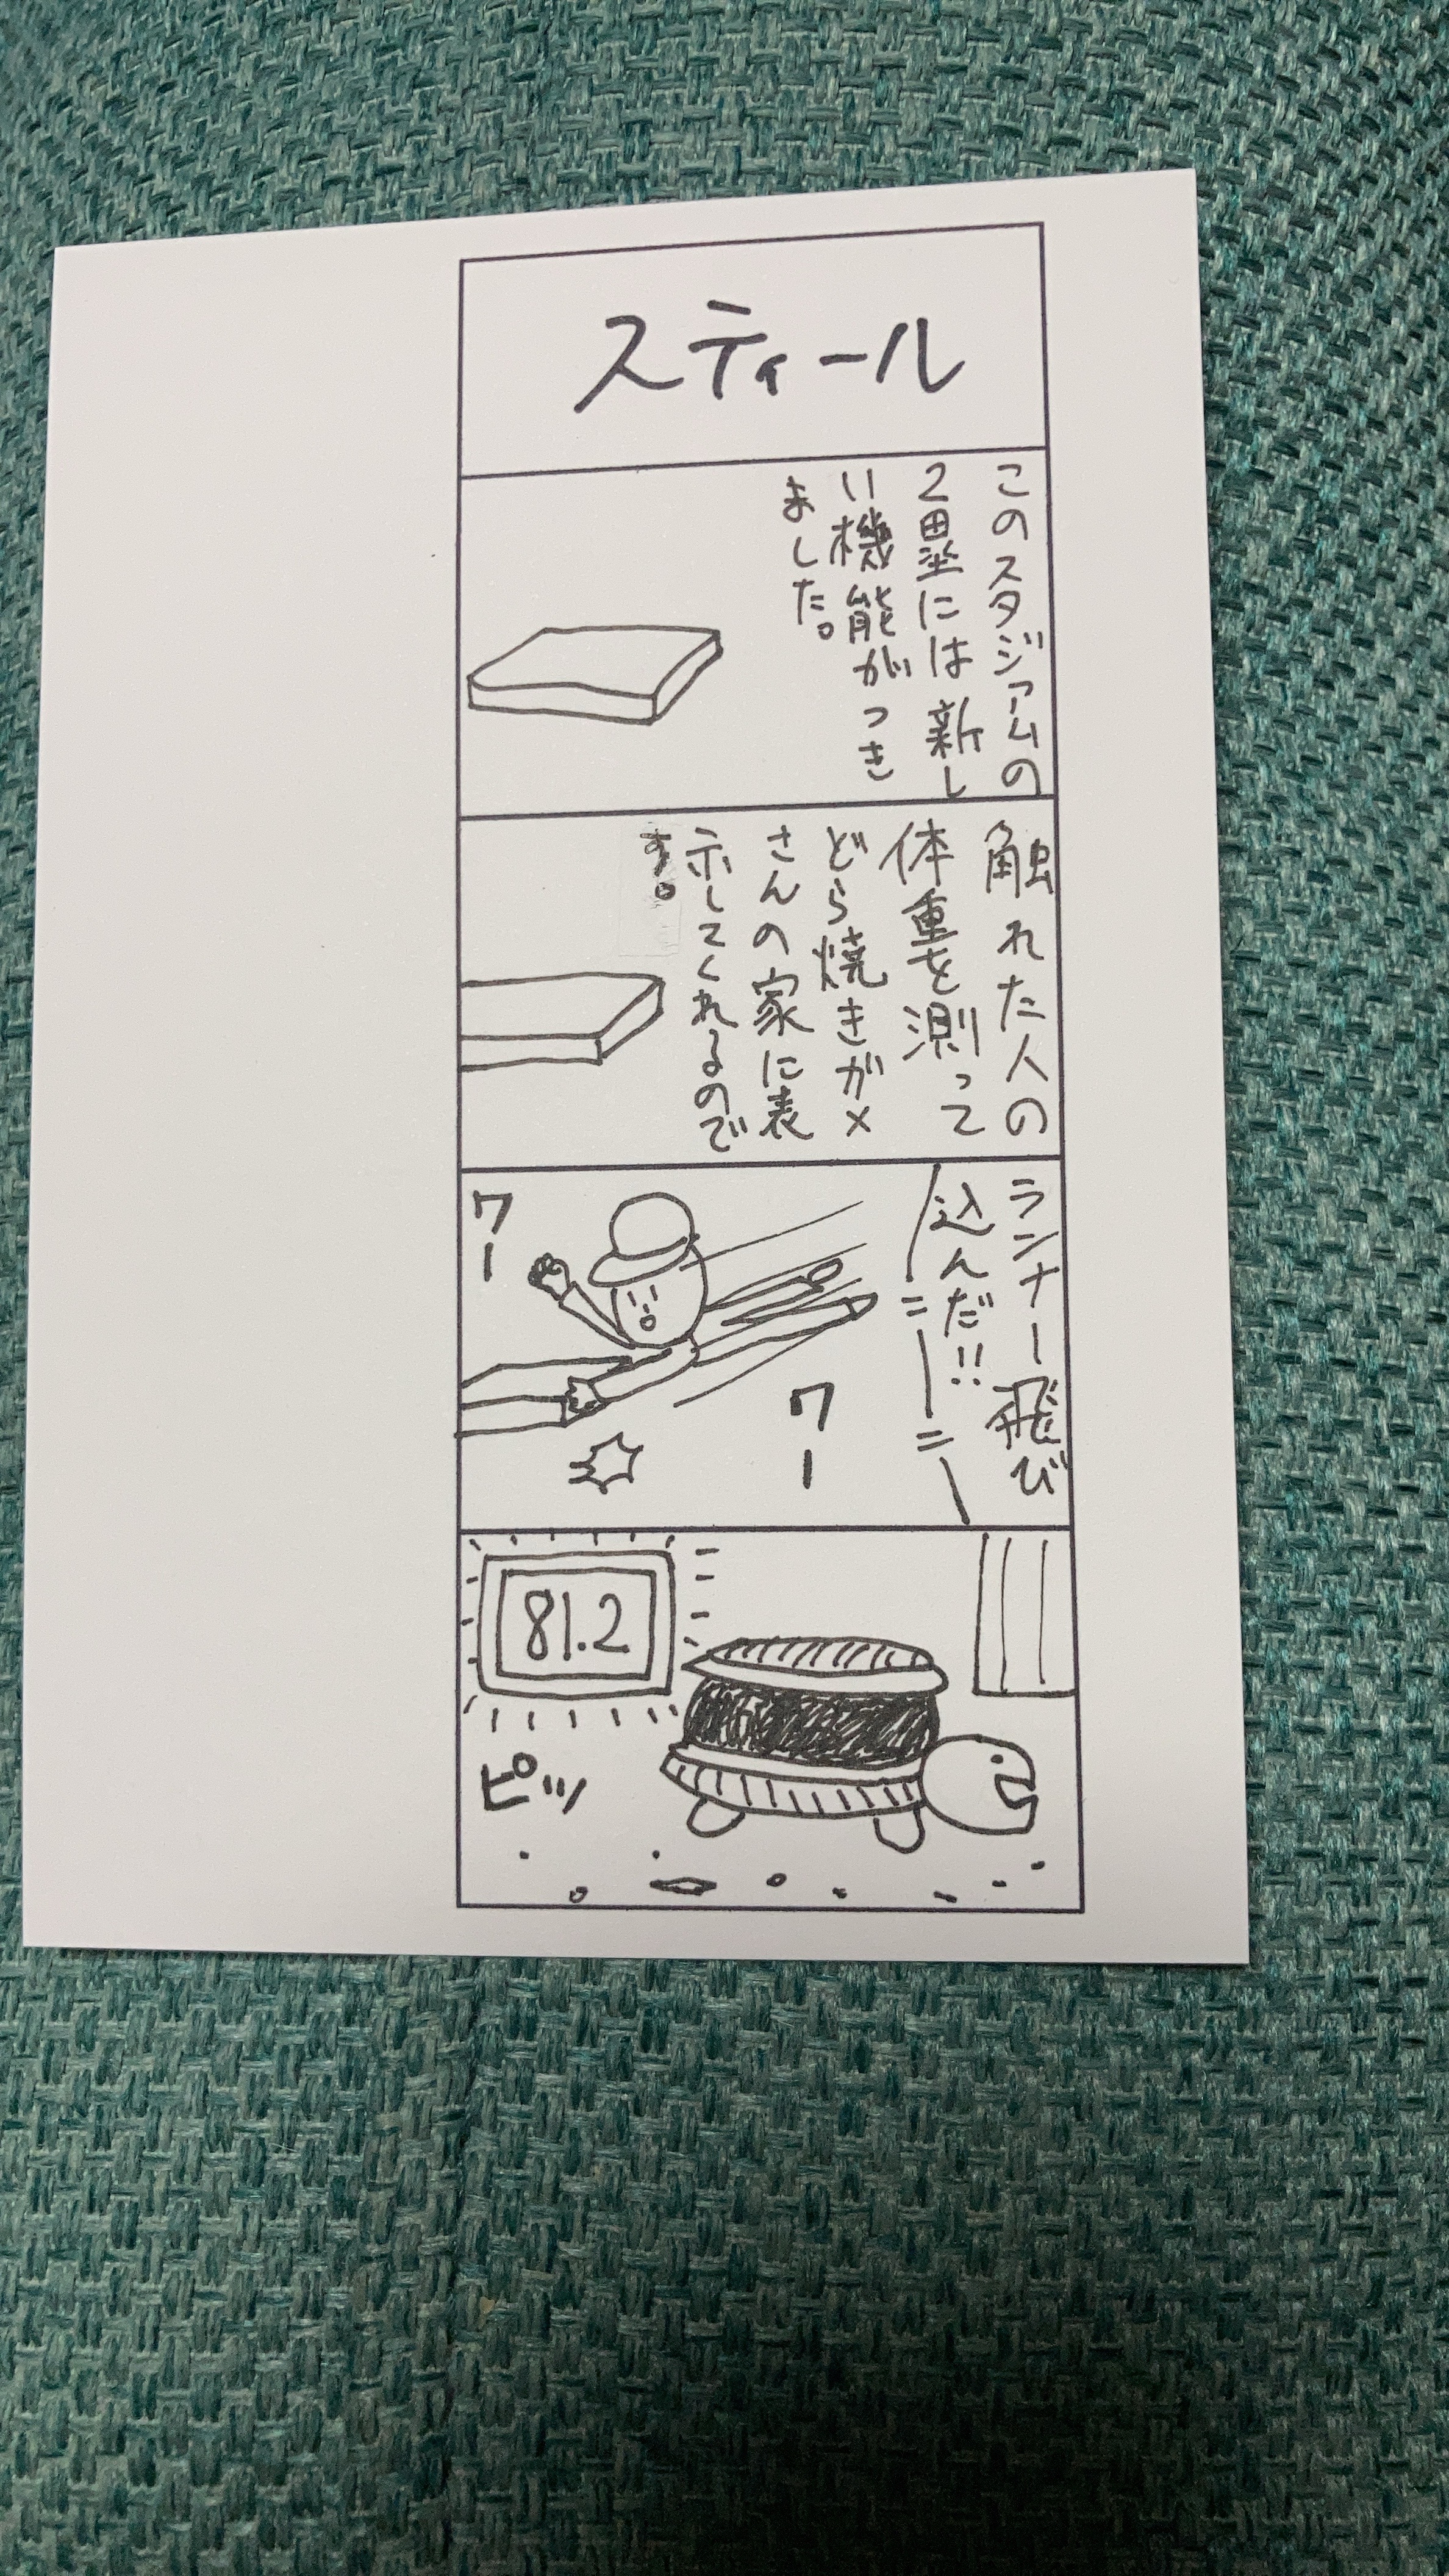 スティール
このスタジアムの
2塁には新し
い機能がつき
ました。
触れた人の
体重を測って
どら焼きガメ
さんの家に表
示してくれるので
す。
ランナー飛び
込んだ!!
ワー
ワー
81.2
ピッ